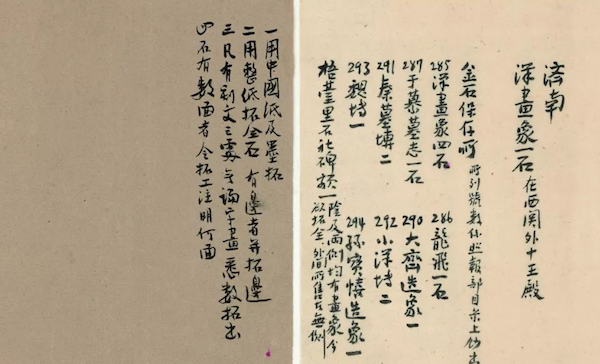 濟南
漢畫象一石 在西関外十王殿
金石保存所 所列號數係照報部目录上抄出
285 漢畫象四石 286 龍飛一石
287 于纂墓志一石 290 大齊造象一
291 秦墓塼二 292 小漢塼二
293 魏塼一 294 孫寶憘造象一
梧臺里石社碑額一 陰及兩側均有畫象 欲拓全 外間所售者無側
一用中國紙及墨拓
二用整紙拓全石 有邊者并拓邊
三凡有刻文之處無論字畫悉數拓出
四石有數面者令拓工注明何面